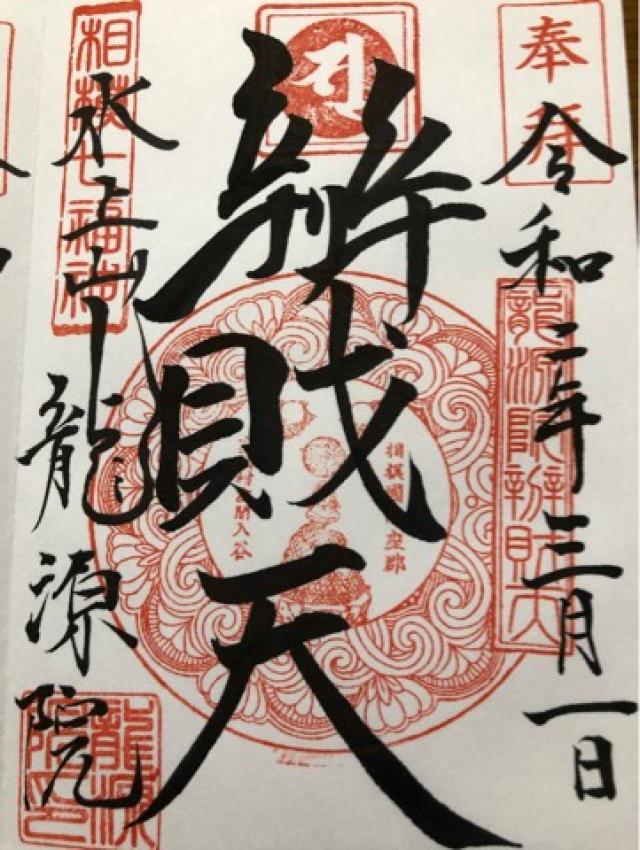 奉拝
令和二年三月一日
龍源院辨財天
辨財天
相模國
座郡
間入谷
相模七福神
水上山 龍源院
龍源院印